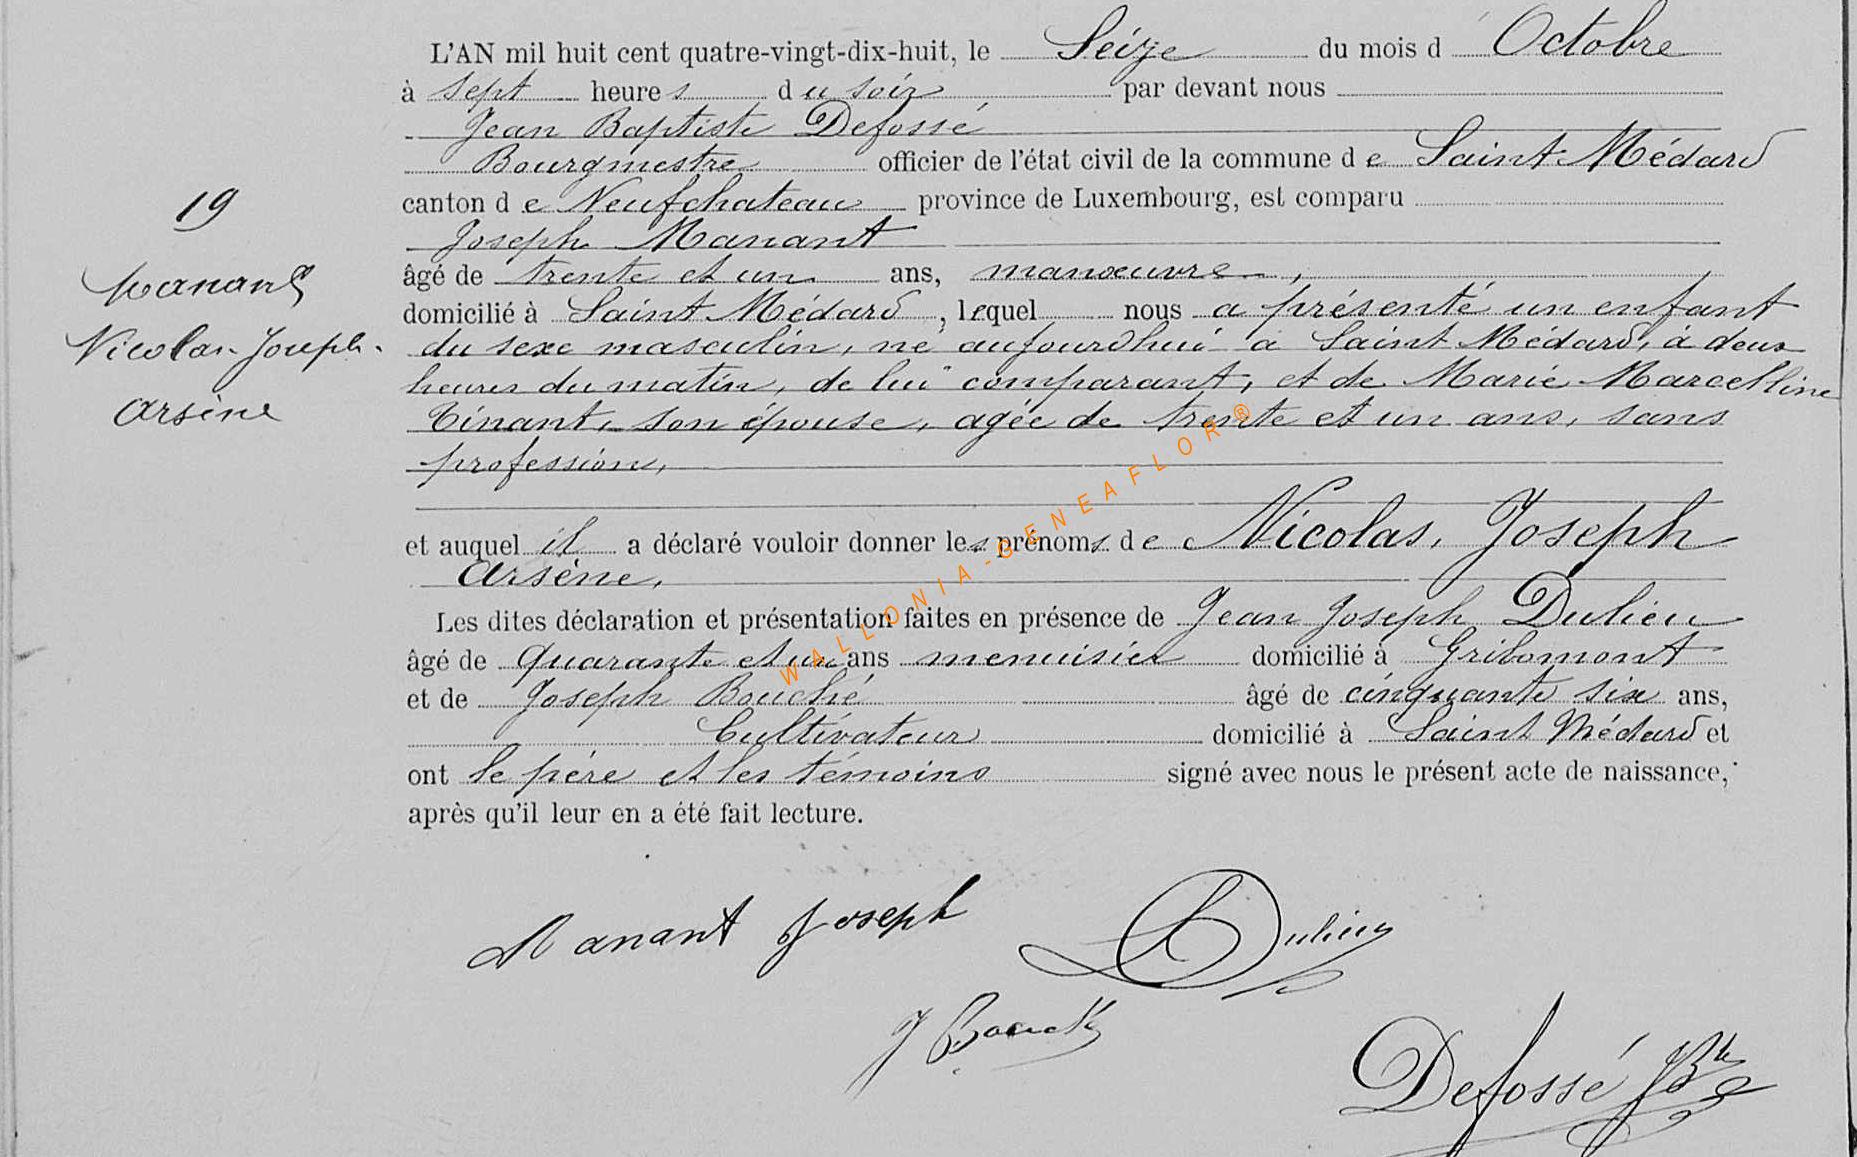 L'AN mil huit cent quatre-vingt-dix-huit, le Seize du mois d Octobre
à sept heures du soir par devant nous
Jean Baptiste Defossé
Bourgmestre officier de l'état civil de la commune de Saint Médard
canton de Neufchateau province de Luxembourg, est comparu
Joseph Manant
âgé de trente et un ans, manœuvre,
domicilié à Saint Médard, lequel nous a présenté un enfant
du sexe masculin, né aujourd'hui à Saint Médard, à deux
heures du matin, de lui comparant, et de Marie Marcelline
Tinant, son épouse, agée de trente et un ans, sans
profession,
et auquel il a déclaré vouloir donner les prénoms de Nicolas, Joseph
Arsène,
Les dites déclaration et présentation faites en présence de Jean Joseph Dulieu
âgé de quarante et un ans menuisier domicilié à Gribomont
et de Joseph Bouché âgé de cinquante six ans,
Cultivateur domicilié à Saint Médard et
ont le père et les témoins signé avec nous le présent acte de naissance,
après qu'il leur en a été fait lecture.
19
Manant
Nicolas-Joseph-
Arsène
Manant Joseph
Dulieu
J Bouché
Defossé JBte
WALLONIA-GENEAFLOR®